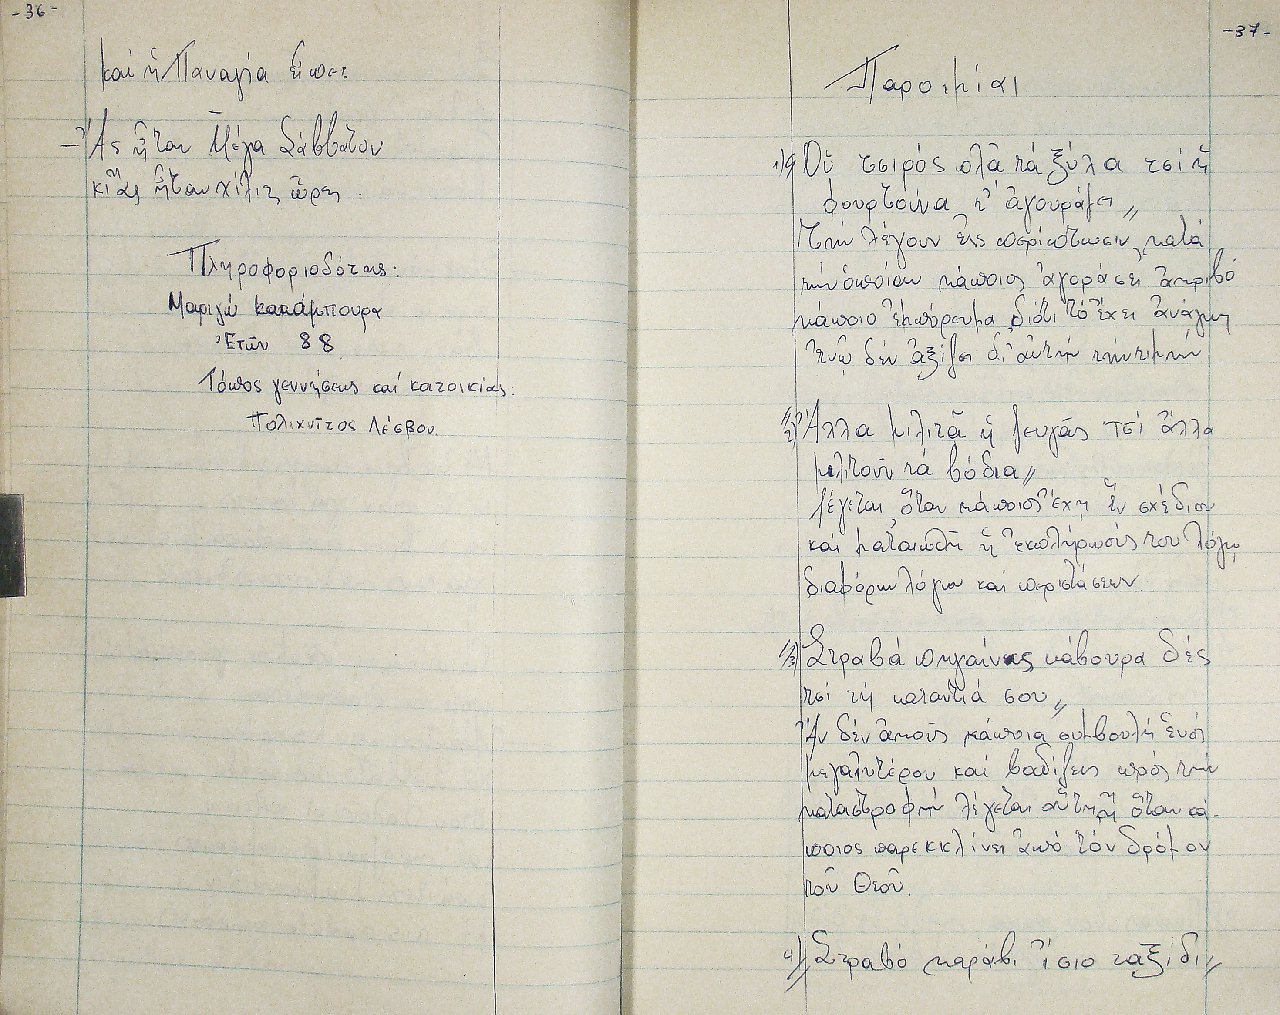 -36-
καί ἡ Παναγία εἶπε:
-Ἄς ἦταν Μέγα Σάββατον
κι ἄς ἦταν χίλιες ὧρες.
Πληροφοριοδότης:
Μαριγώ Κακάμπουρα
Ἐτῶν 88
Τόπος γεννήσεως καί κατοικίας.
Πολιχνῖτος Λέσβου.
-37-
Παροιμίαι
1) Οὗ τσιρός πλᾶ τά ξύλα τσί ἡ
φουρτούνα τ' ἀγουράζει„
Τήν λέγουν εἰς περίπτωσιν κατά
τήν ὁποίαν κάποιος ἀγοράσει ἀκριβό
κάποιο ἐμπόρευμα διότι τό ἔχει ἀνάγκη
ἐνῷ δέν ἀξίζει δι' αὐτήν τήν τιμήν
2) Ἄλλα μιλιτᾶ ἡ ζευγᾶς τσί ἄλλα
μιλιτοῦν τά βόδια„
Λέγεται ὅταν κάποιος ἔχη ἕν σχέδιον
καί ματαιωθῆ ἡ ἐκπλήρωσίς του λόγῳ
διαφόρων λόγων καί περιστάσεων
3) Στραβά πηγαίνεις κάβουρα δές
τσί τή καταντιά σου„
Ἄν δέν ἀκοῦς κάποια συμβουλή ἑνός
μεγαλυτέρου καί βαδίζεις πρός τήν
καταστροφήν λέγεται αὕτη ἤ ὅταν κά-
ποιος παρεκκλίνει ἀπό τόν δρόμον
τοῦ Θεοῦ.
4) „Στραβό καράβι ἴσιο ταξίδι„